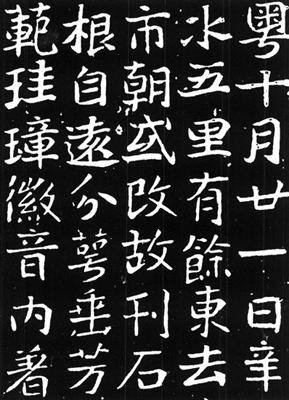 粵十月廿一日辛
水五里有餘東去
市朝或改故刊石
根自遠分萼垂芳
範珪璋徽音内著